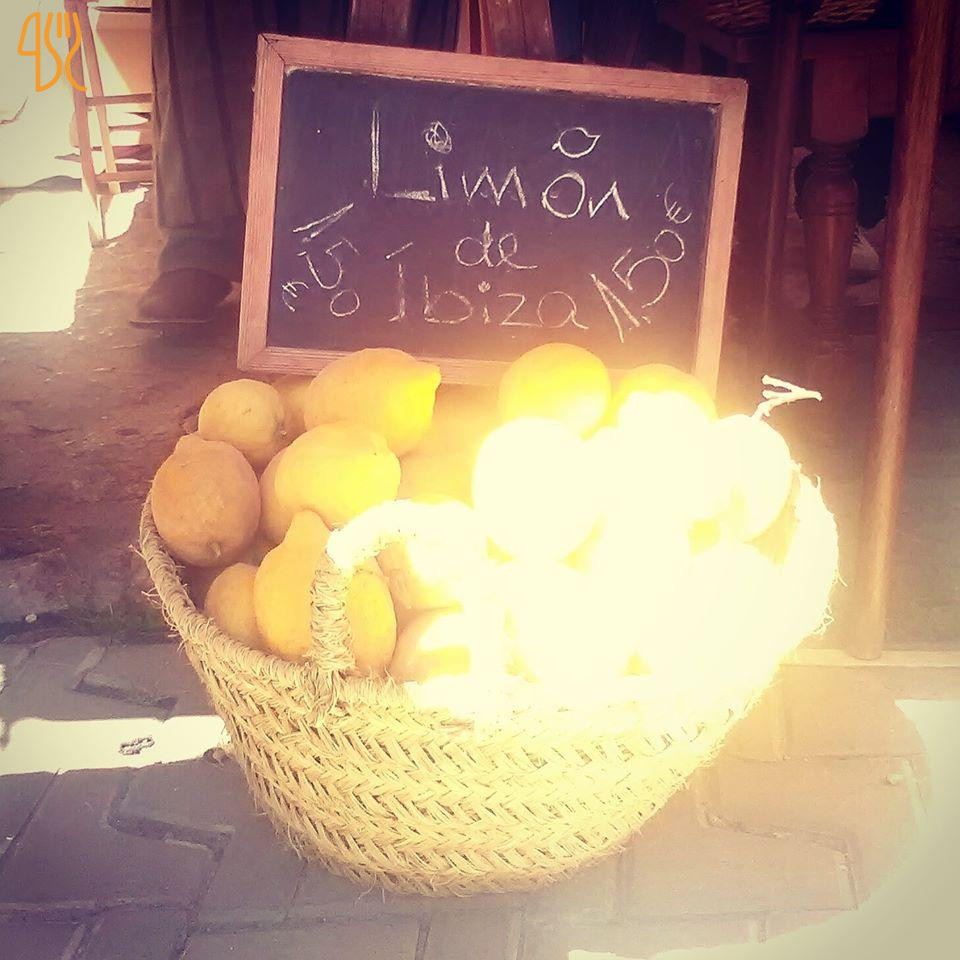 Limón
de
Ibiza
1,50 €
1,50 €